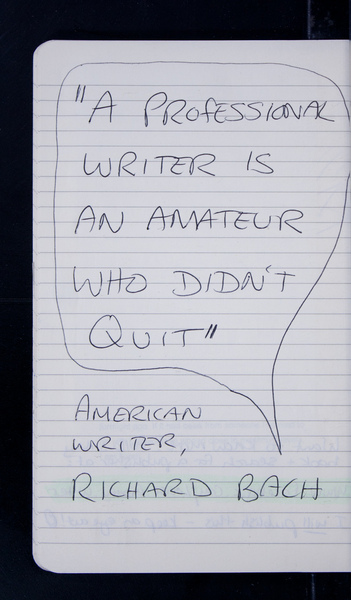 "A PROFESSIONAL
WRITER IS
AN AMATEUR
WHO DIDN'T
QUIT"
AMERICAN
WRITER,
RICHARD BACH